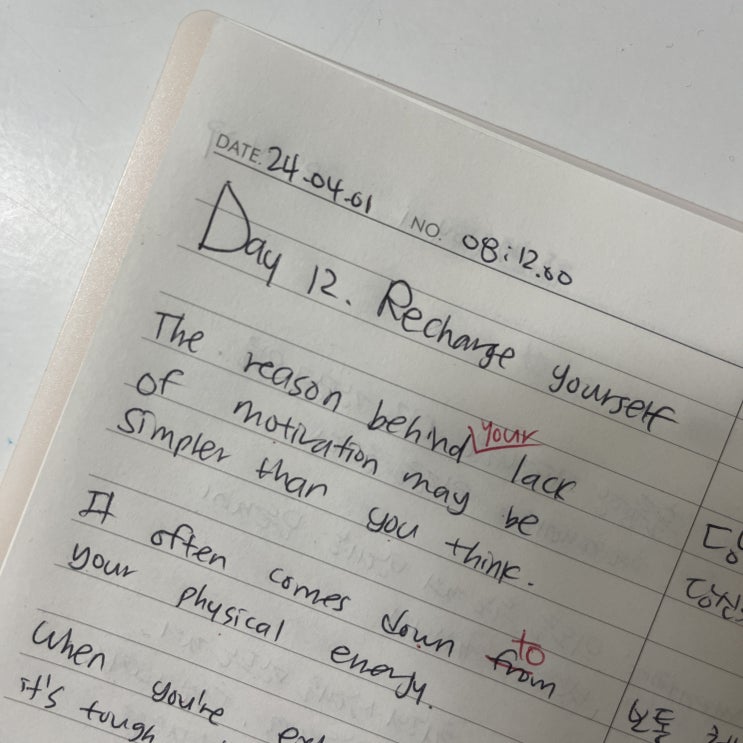 DATE. 24.04.01 NO. 08:12.00
Day 12. Recharge yourself
The reason behind your lack
of motivation may be
simpler than you think.
It often comes down from to
your physical energy.
when you're
it's tough
보통